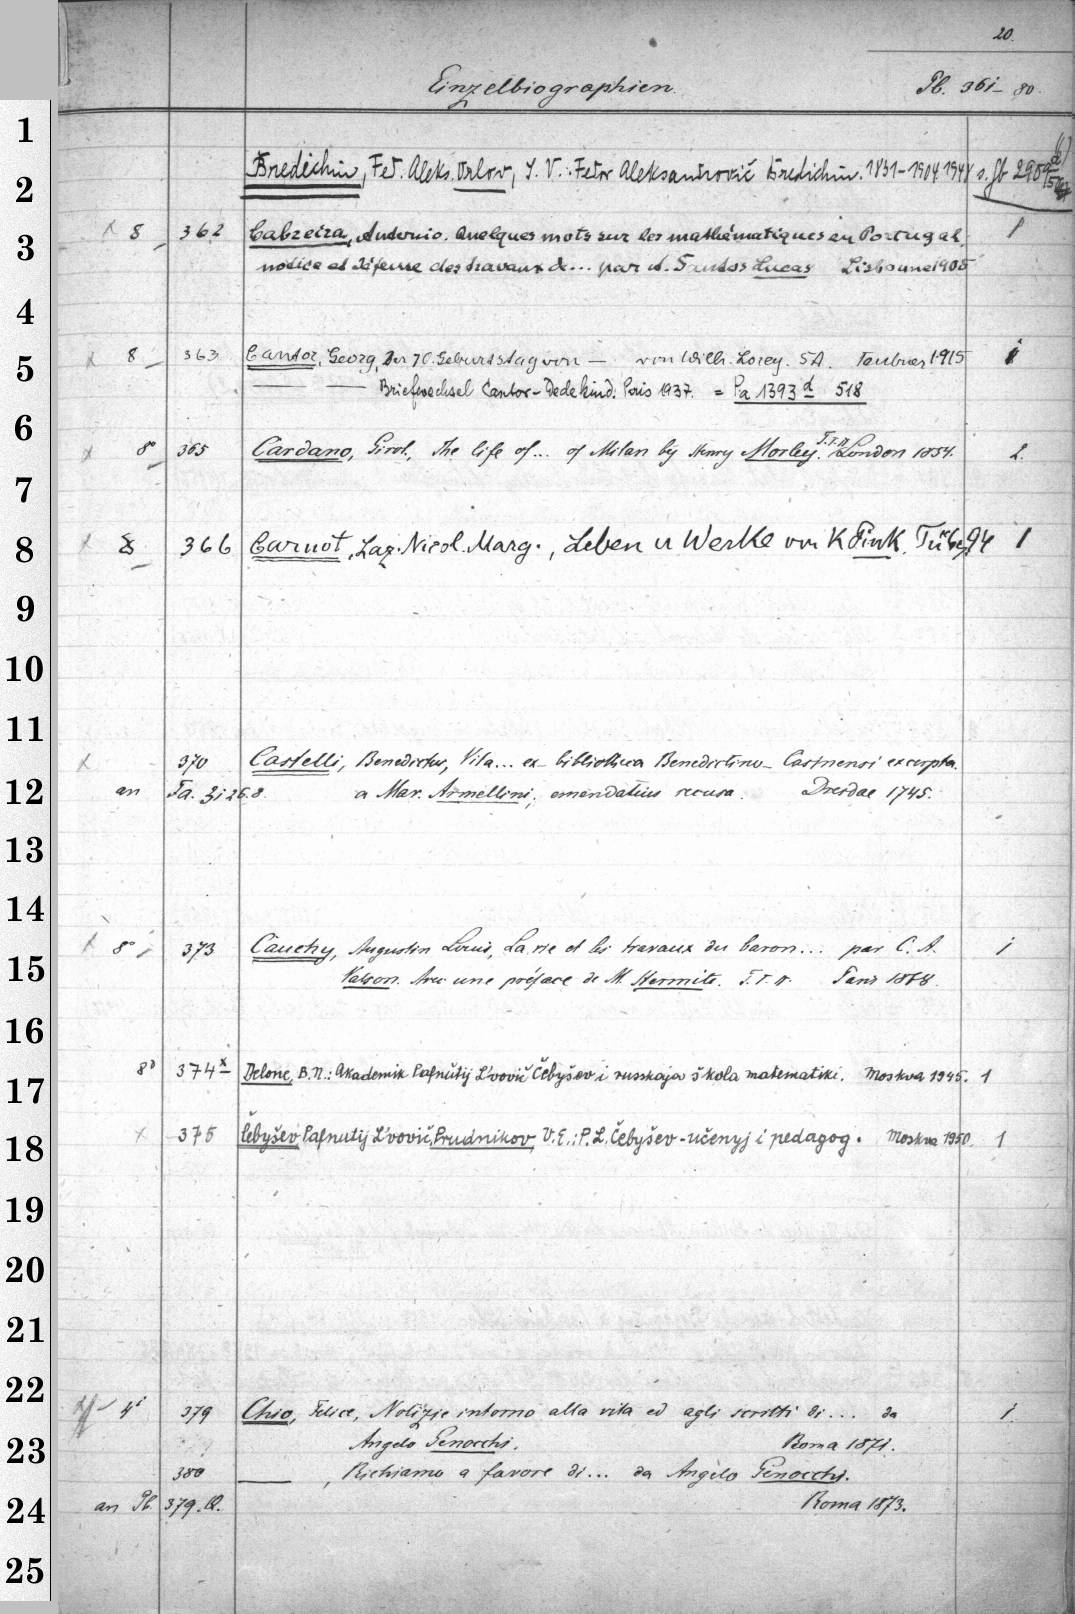 20.
Einzelbiographien. Pb. 361-80.
1
Bredichin, Fed. Aleks. Orlov, S. V.: Fedor Aleksandrovič Bredichin. 1831-1904. 1948 s. Gb 2909
2
8 362 Cabreira, Antonio. Quelques mots sur les mathématiques en Portugal, 1
3
notice et défense des travaux de... par A. Santos Lucas Lisbonne 1905
4
8 363 Cantor, Georg, Der 70. Geburtstag von — von Wilh. Lorey. SA. Teubner 1915
5
— — Briefwechsel Cantor-Dedekind. Paris 1937. = Pa 1393 d 518
6
8° 365 Cardano, Girol., The life of... of Milan by Henry Morley. T.I.II. London 1854. 2.
7
8 366 Carnot, Laz. Nicol. Marg., Leben u Werke von K Fink, Tübg. 94 1
8
9
10
11
370 Castelli, Benedictus, Vita... ex bibliotheca Benedictino-Casinensi excerpta.
12
an Fa. 3i 26.8. a Mar. Armellini, emendatius recusa. Dresdae 1745.
13
14
8° 373 Cauchy, Augustin Louis, La vie et les travaux du baron... par C. A. 1
15
Valson. Avec une préface de M. Hermite. T.I.II. Paris 1868.
16
8° 374x Delone, B.N.: Akademik Pafnutij L'vovič Čebyšev i russkaja škola matematiki. Moskva 1945. 1
17
375 Čebyšev Pafnutij L'vovič, Prudnikov V.E.: P. L. Čebyšev - učenyj i pedagog. Moskva 1950. 1
18
19
20
21
22
4° 379 Chio, Felice, Notizie intorno alla vita ed agli scritti di... da 1.
23
Angelo Genocchi. Roma 1871.
380 —, Richiamo a favore di... da Angelo Genocchi.
24
an Pb. 379.Q. Roma 1873.
25